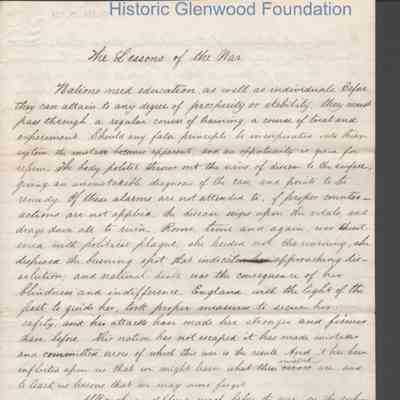 Historic Glenwood Foundation
The Lessons of the War
Nations need education, as well as individuals. Before
they can attain to any degree of prosperity or stability, they must
pass through a regular course of training, a course of trial and
experiment. Should any false principle be incorporated into their
system the mistake becomes apparent, and an opportunity is given for
reform. The body politic throws out the virus of disease to the surface,
giving an unmistakable diagnosis of the case, and points to the
remedy. If these alarms are not attended to, if proper counter-
actions are not applied, the disease seizes upon the vitals, and
drags down all to ruin. Rome, time and again, was
with political plague, she heeded not the warning, she
despised the burning spot that indicated approaching dis-
solution, and national death was the consequence of her
blindness and indifference. England, with the light of the
past to guide her, took proper measures to secure her
safety, and her attacks have made her stronger and firmer
than before. This nation has not escaped, it has made mistakes
and committed errors of which this war is the result. And it has been
inflicted upon us that we might learn what these errors are, and
to teach us lessons that we may never forget